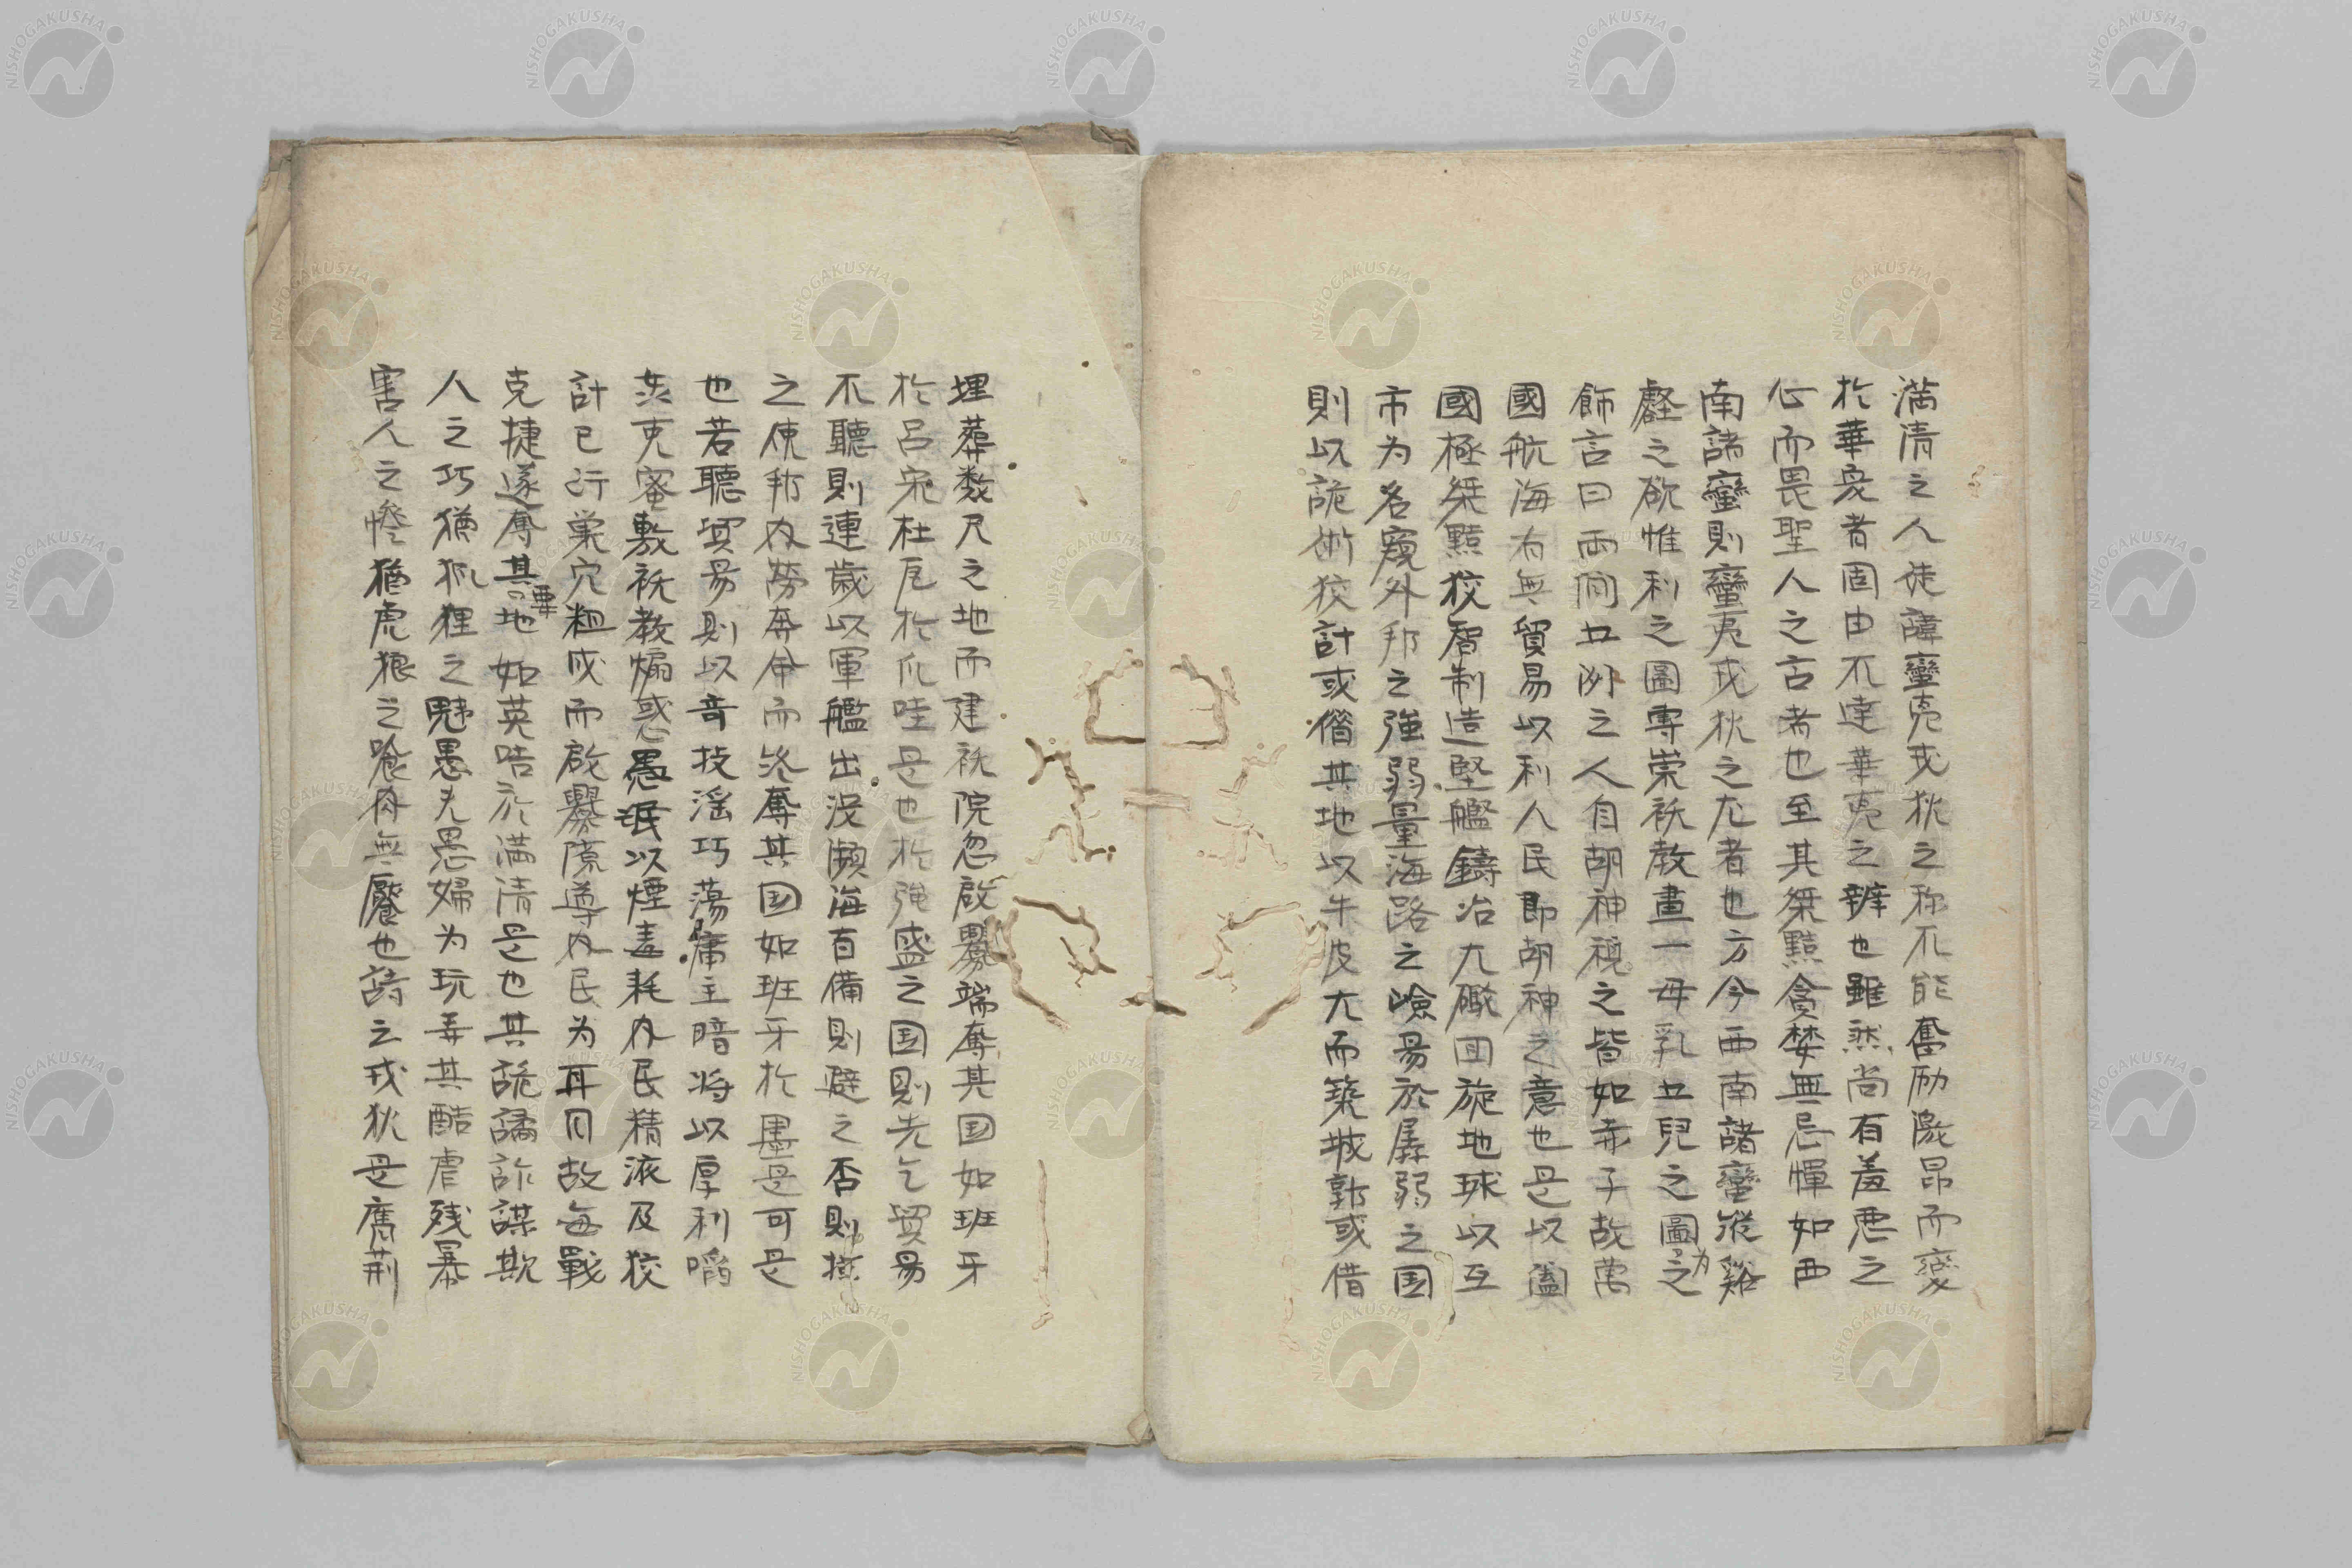 満清之人徒諱蠻夷戎狄之称不能奮励激昂而變
於華㐮者固由不達華夷之辨也雖然尚有羞悪之
心而畏聖人之古者也至其桀黠貪婪無忌憚如西
南諸蠻則蠻夷戎狄之尤者也方今西南諸蠻縱谿
壑之欲惟利之圖専崇祅教畫一母乳五兒之圖為之
飾言曰両間五洲之人自胡神視之皆如赤子故萬
國航海有無貿易以利人民即胡神之意也是以闔
國極桀黠狡智制造堅艦鋳冶大礮回旋地球以互
市为名窺外邦之強弱量海路之嶮易於孱弱之国
則以詭術狡計或僭其地以牛皮大而築城郭或借
埋葬数尺之地而建祅院忽啟釁端奪其国如班牙
於呂宋杜瓦於爪哇是也於強盛之国則先乞貿易
不聴則連歳以軍艦出没瀕海有備則避之否則擾
之使邦内勞奔命而終奪其国如班牙於墨是可是
也若聴貿易則以奇技淫巧蕩庸主暗将以厚利啗
夷吏蜜敷祅教煽惑愚氓以煙毒耗内民精液及狡
計已行巣穴粗成而啟釁隙導内民为耳目故毎戰
克捷遂奪其要地如英咭於満清是也其詭譎詐謀欺
人之巧猶狐狸之魅愚夫愚婦为玩弄其酷虐残暴
害人之惨猶虎狼之喰肉無饜也詩之戎狄是膺荊